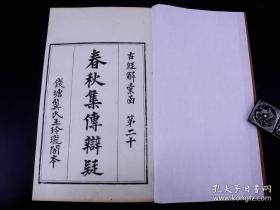 古經解彙函 第二十
春秋集傳辯疑
錢塘龔氏玉玲瓏閣本
孔夫子旧书网